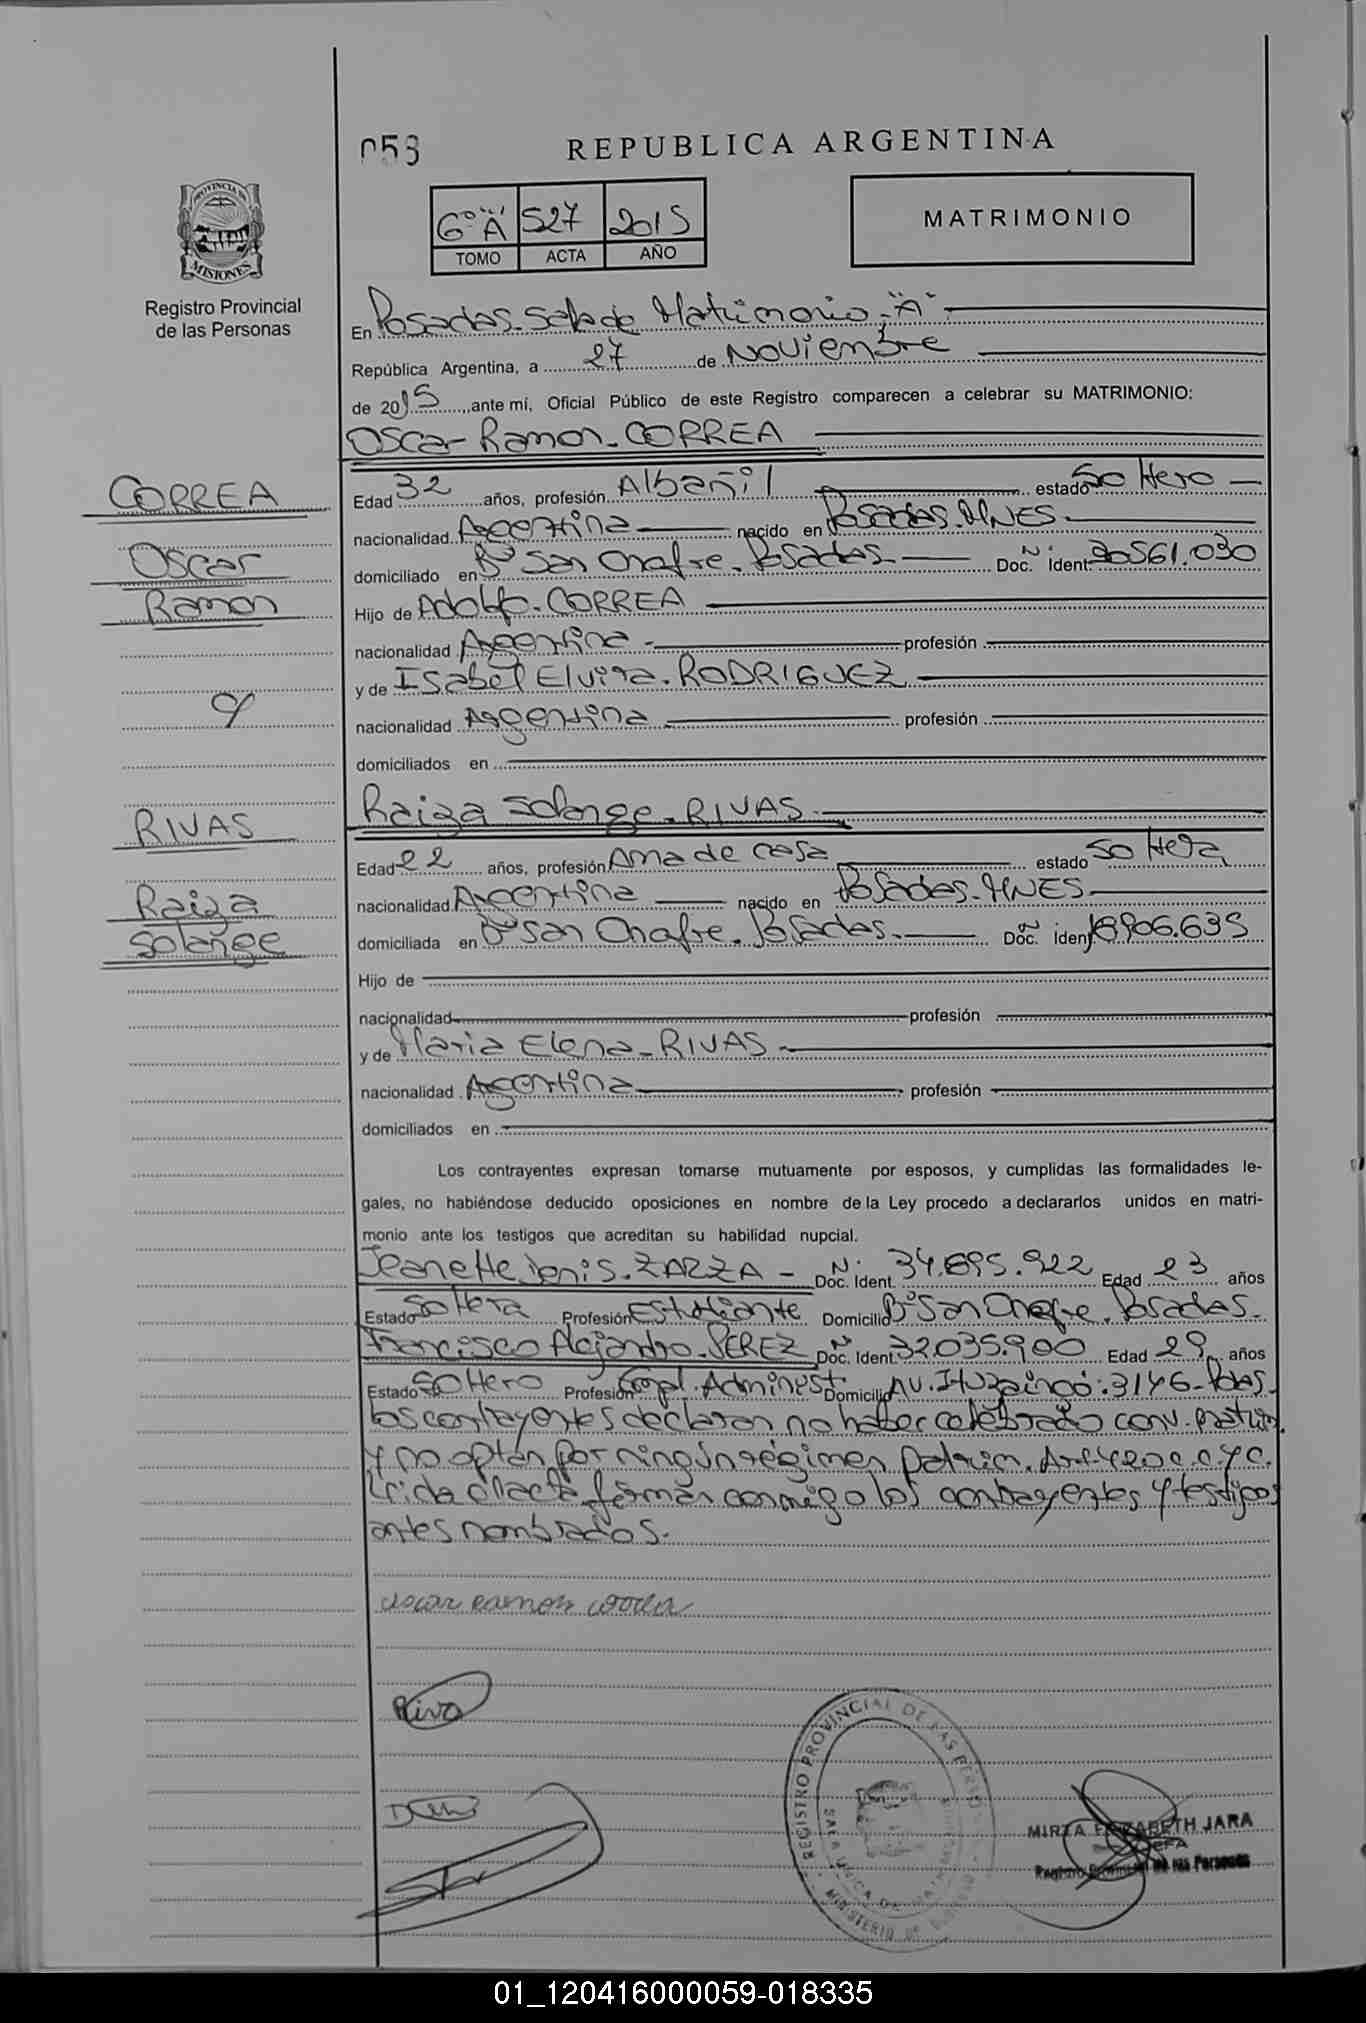 058
REPUBLICA ARGENTINA
PROVINCIA DE MISIONES
Registro Provincial
de las Personas
6º "A" 527 2015
TOMO ACTA AÑO
MATRIMONIO
En Posadas-Sala de Matrimonio-"A"
República Argentina, a 27 de Noviembre
de 2015, ante mí, Oficial Público de este Registro comparecen a celebrar su MATRIMONIO:
Oscar Ramon-CORREA
CORREA
Oscar
Ramon
Edad 32 años, profesión Albañil estado Soltero
nacionalidad Argentina nacido en Posadas-MNES
domiciliado en Bº San Onofre. Posadas Doc. Nº Ident. 30561.030
Hijo de Adolfo-CORREA
nacionalidad Argentina profesión
y de Isabel Elvira-RODRIGUEZ
nacionalidad Argentina profesión
domiciliados en
Raiza Solange-RIVAS
RIVAS
Raiza
Solange
Edad 22 años, profesión Ama de casa estado Soltera
nacionalidad Argentina nacido en Posadas-MNES
domiciliada en Bº San Onofre. Posadas. Doc. Nº Ident.
Hijo de
nacionalidad profesión
y de Maria Elena-RIVAS
nacionalidad Argentina profesión
domiciliados en
Los contrayentes expresan tomarse mutuamente por esposos, y cumplidas las formalidades le-
gales, no habiéndose deducido oposiciones en nombre de la Ley procedo a declararlos unidos en matri-
monio ante los testigos que acreditan su habilidad nupcial.
Jeanette Jenis-ZARZA Doc. Nº Ident. 34.695.922 Edad 23 años
Estado Soltera Profesión Estudiante Domicilio Bº San Onofre. Posadas.
Francisco Alejandro-PEREZ Doc. Nº Ident. 32.035.900 Edad 29 años
Estado Soltero Profesión Empl. Administ Domicilio Av. Ituzaingó: 3146-Pdas.
los contrayentes declaran no haber celebrado conv. matrim.
y no optan por ningún régimen patrim. Art 420 C.C.y C.
Leida el acta firman conmigo los contrayentes y testigos
antes nombrados.
oscar ramon correa
Riva
REGISTRO PROVINCIAL DE LAS PERSONAS
SALA UNICA DE MATRIMONIO
MINISTERIO DE GOBIERNO
MIRTA ELIZABETH JARA
JEFA
Registro Provincial de las Personas
01_120416000059-018335